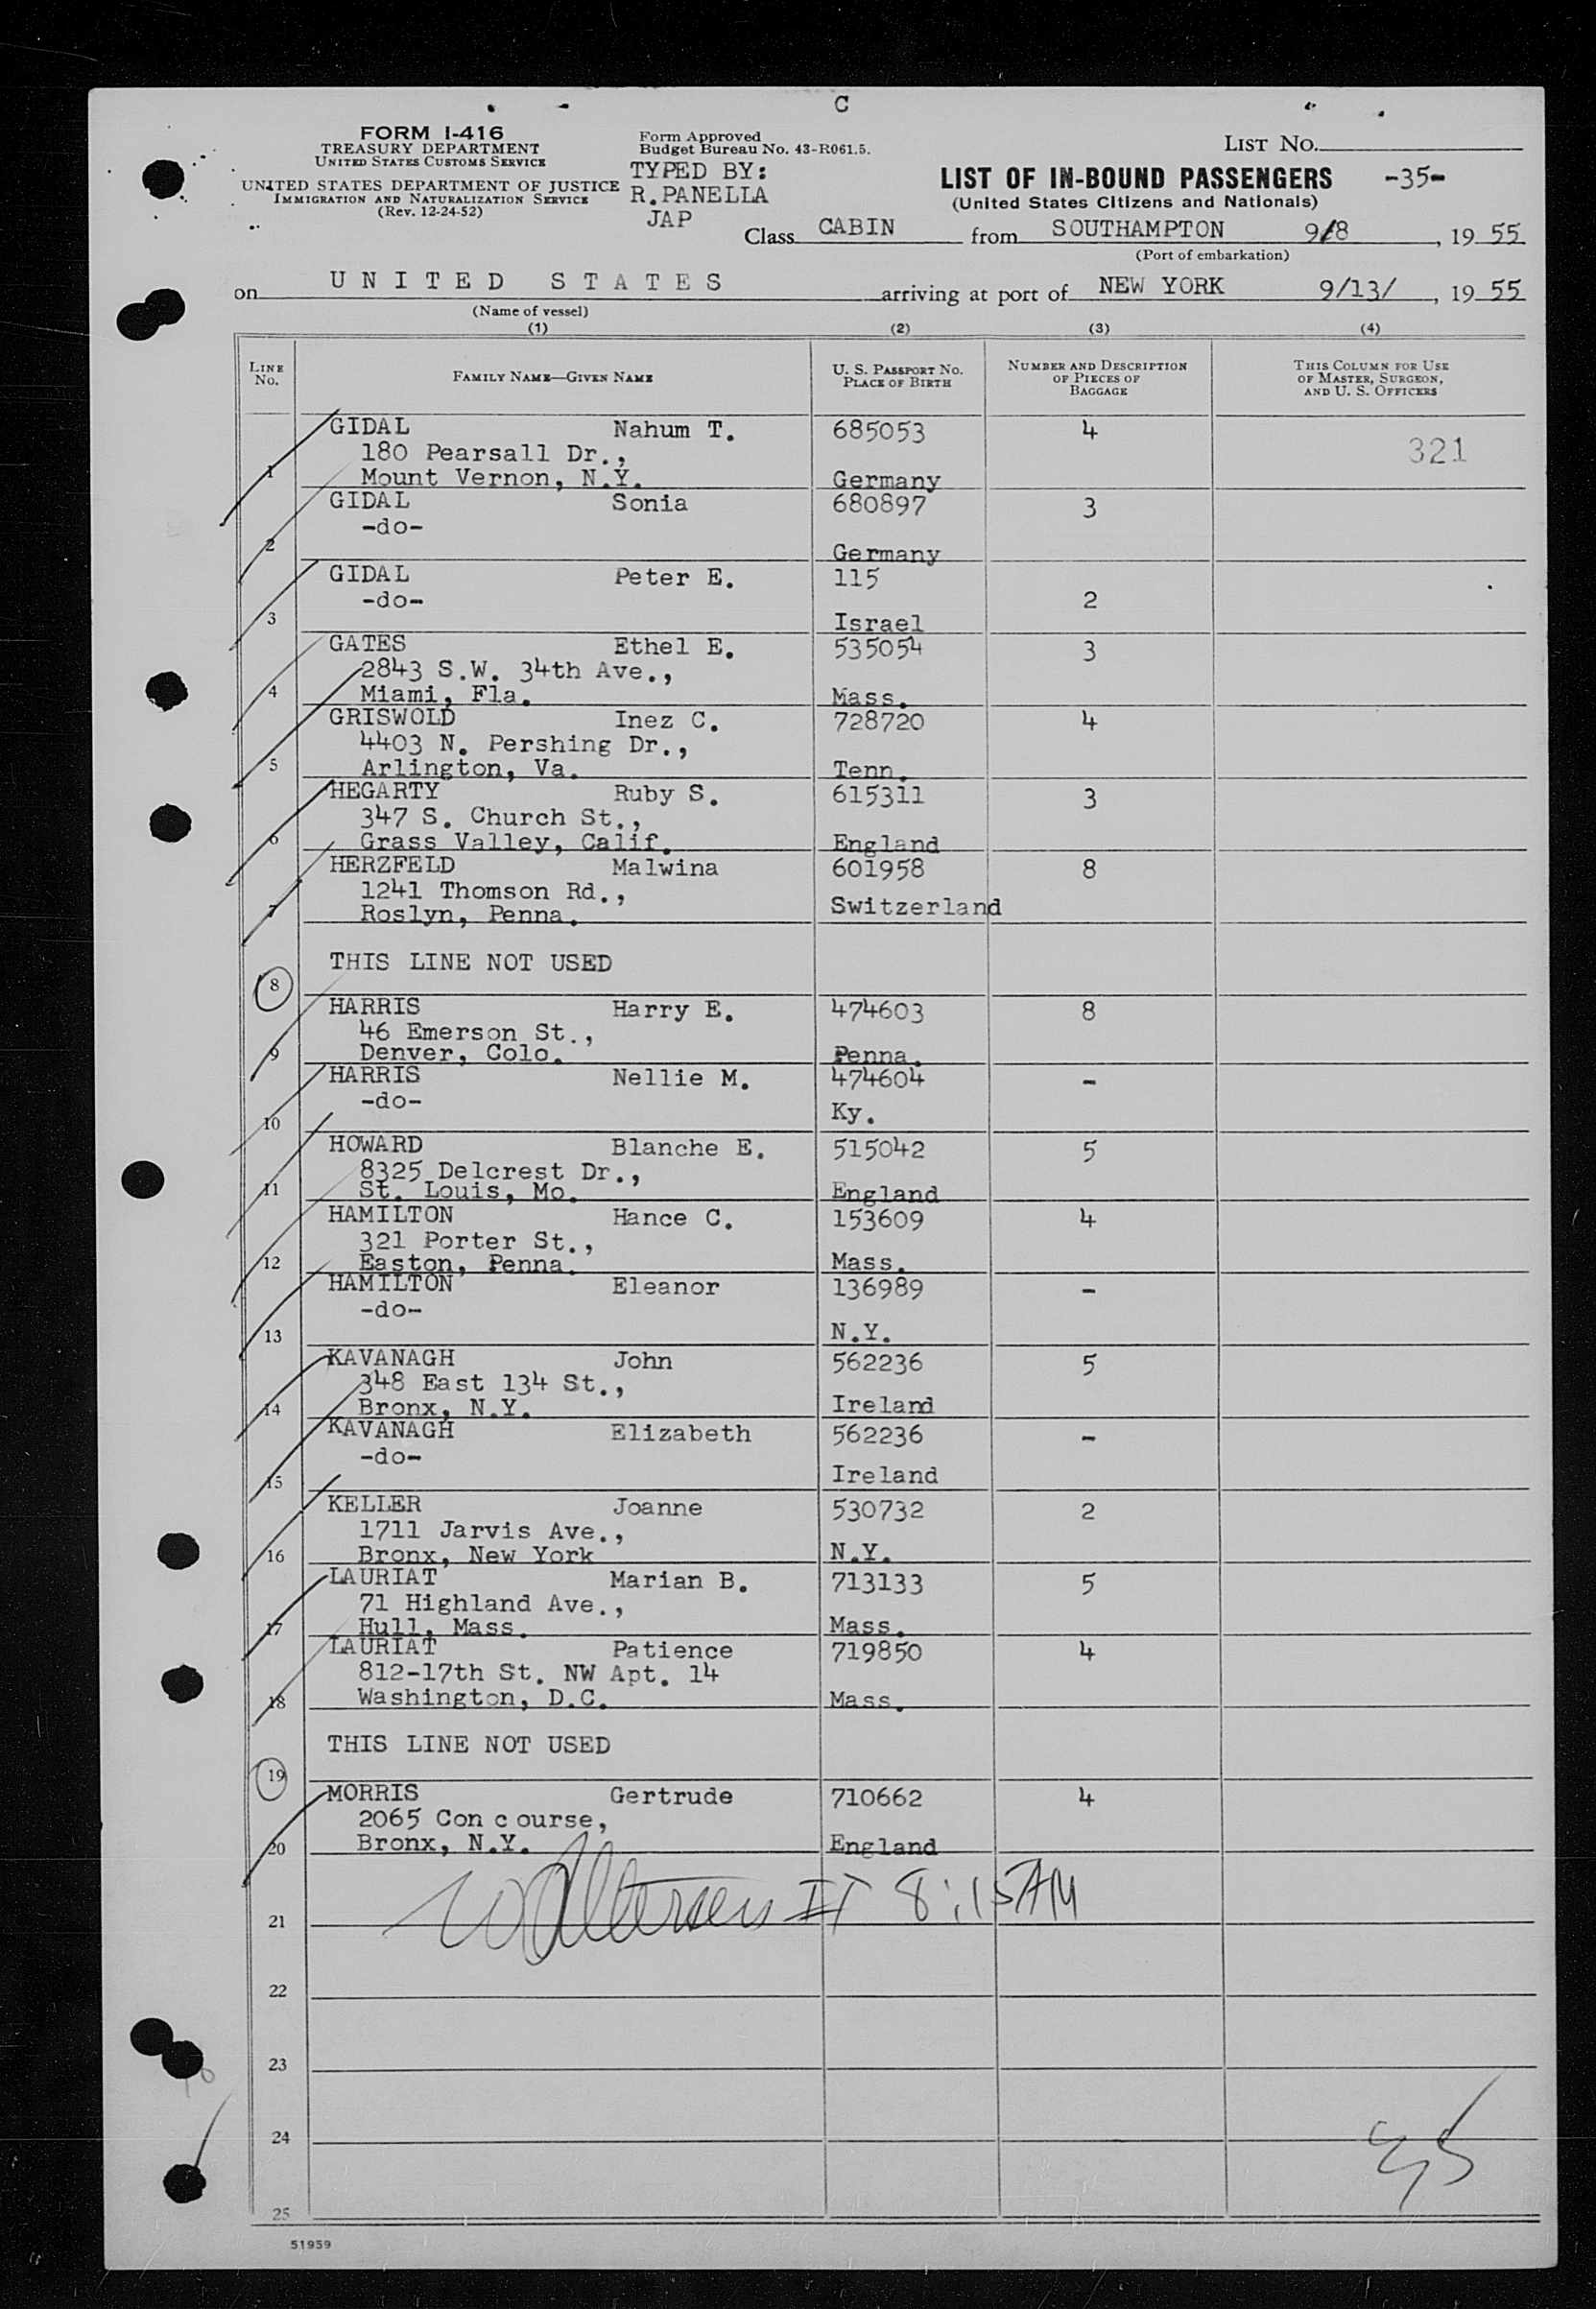 C
FORM I-416
TREASURY DEPARTMENT
UNITED STATES CUSTOMS SERVICE
UNITED STATES DEPARTMENT OF JUSTICE
IMMIGRATION AND NATURALIZATION SERVICE
(Rev. 12-24-52)
Form Approved
Budget Bureau No. 43-R061.5.
TYPED BY:
R.PANELLA
JAP
LIST NO.
LIST OF IN-BOUND PASSENGERS -35-
(United States Citizens and Nationals)
Class CABIN from SOUTHAMPTON 9/8, 19 55
(Port of embarkation)
on UNITED STATES arriving at port of NEW YORK 9/13/, 19 55
(Name of vessel)
(1) (2) (3) (4)
LINE NO. FAMILY NAME—GIVEN NAME U. S. PASSPORT NO. PLACE OF BIRTH NUMBER AND DESCRIPTION OF PIECES OF BAGGAGE THIS COLUMN FOR USE OF MASTER, SURGEON, AND U. S. OFFICERS
GIDAL Nahum T. 685053 4 321
180 Pearsall Dr.,
1 Mount Vernon, N.Y. Germany
GIDAL Sonia 680897 3
-do-
2 Germany
GIDAL Peter E. 115
-do- 2
3 Israel
GATES Ethel E. 535054 3
2843 S.W. 34th Ave.,
4 Miami, Fla. Mass.
GRISWOLD Inez C. 728720 4
4403 N. Pershing Dr.,
5 Arlington, Va. Tenn.
HEGARTY Ruby S. 615311 3
347 S. Church St.,
6 Grass Valley, Calif. England
HERZFELD Malwina 601958 8
1241 Thomson Rd.,
7 Roslyn, Penna. Switzerland
THIS LINE NOT USED
8
HARRIS Harry E. 474603 8
46 Emerson St.,
9 Denver, Colo. Penna.
HARRIS Nellie M. 474604 -
-do-
10 Ky.
HOWARD Blanche E. 515042 5
8325 Delcrest Dr.,
11 St. Louis, Mo. England
HAMILTON Hance C. 153609 4
321 Porter St.,
12 Easton, Penna. Mass.
HAMILTON Eleanor 136989 -
-do-
13 N.Y.
KAVANAGH John 562236 5
348 East 134 St.,
14 Bronx, N.Y. Ireland
KAVANAGH Elizabeth 562236 -
-do-
15 Ireland
KELLER Joanne 530732 2
1711 Jarvis Ave.,
16 Bronx, New York N.Y.
LAURIAT Marian B. 713133 5
71 Highland Ave.,
17 Hull, Mass. Mass.
LAURIAT Patience 719850 4
812-17th St. NW Apt. 14
18 Washington, D.C. Mass.
THIS LINE NOT USED
19
MORRIS Gertrude 710662 4
2065 Con c ourse,
20 Bronx, N.Y. England
II 8:15AM
21
22
23
24
25
51959